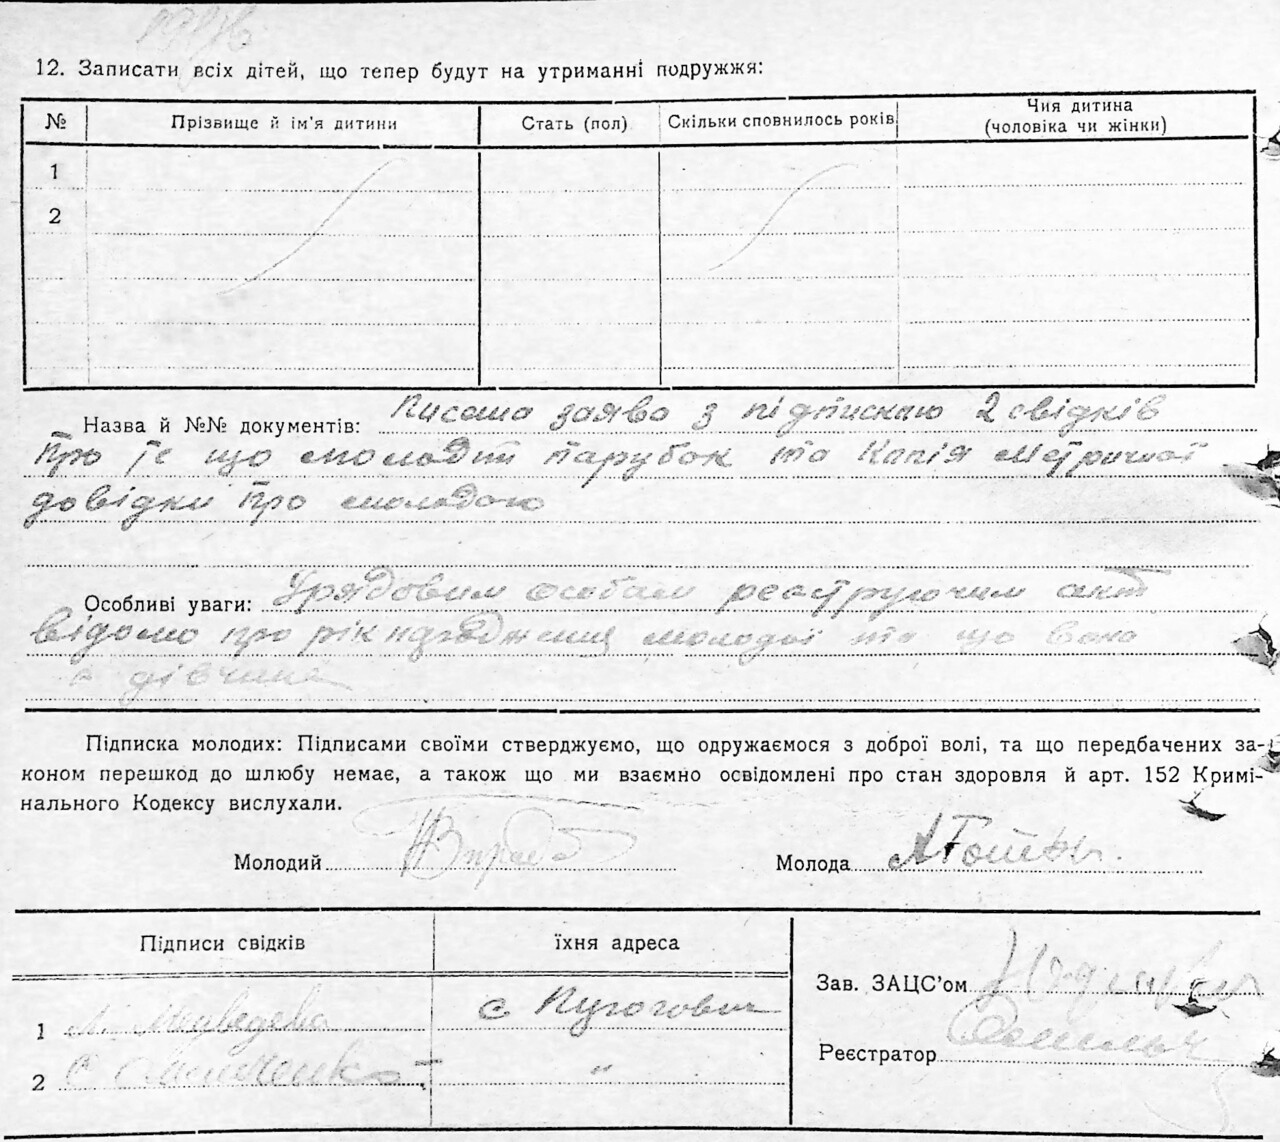 12. Записати всіх дітей, що тепер будут на утриманні подружжя:
№ Прізвище й ім'я дитини Стать (пол) Скільки сповнилось років Чия дитина
(чоловіка чи жінки)
1
2
Назва й №№ документів: заява з підпискаю 2 свідків
про те що молодий парубок та Капія Метричної
довідки про молодого
Особливі уваги: Урядовим особам реєструючим акт
відомо про рік народження молодої та що вона
є дівчина
Підписка молодих: Підписами своїми стверджуємо, що одружаємося з доброї волі, та що передбачених за-
коном перешкод до шлюбу немає, а також що ми взаємно освідомлені про стан здоровля й арт. 152 Кримі-
нального Кодексу вислухали.
Молодий Молода
Підписи свідків їхня адреса
Зав. ЗАЦС'ом
1 с
2 "
Реєстратор